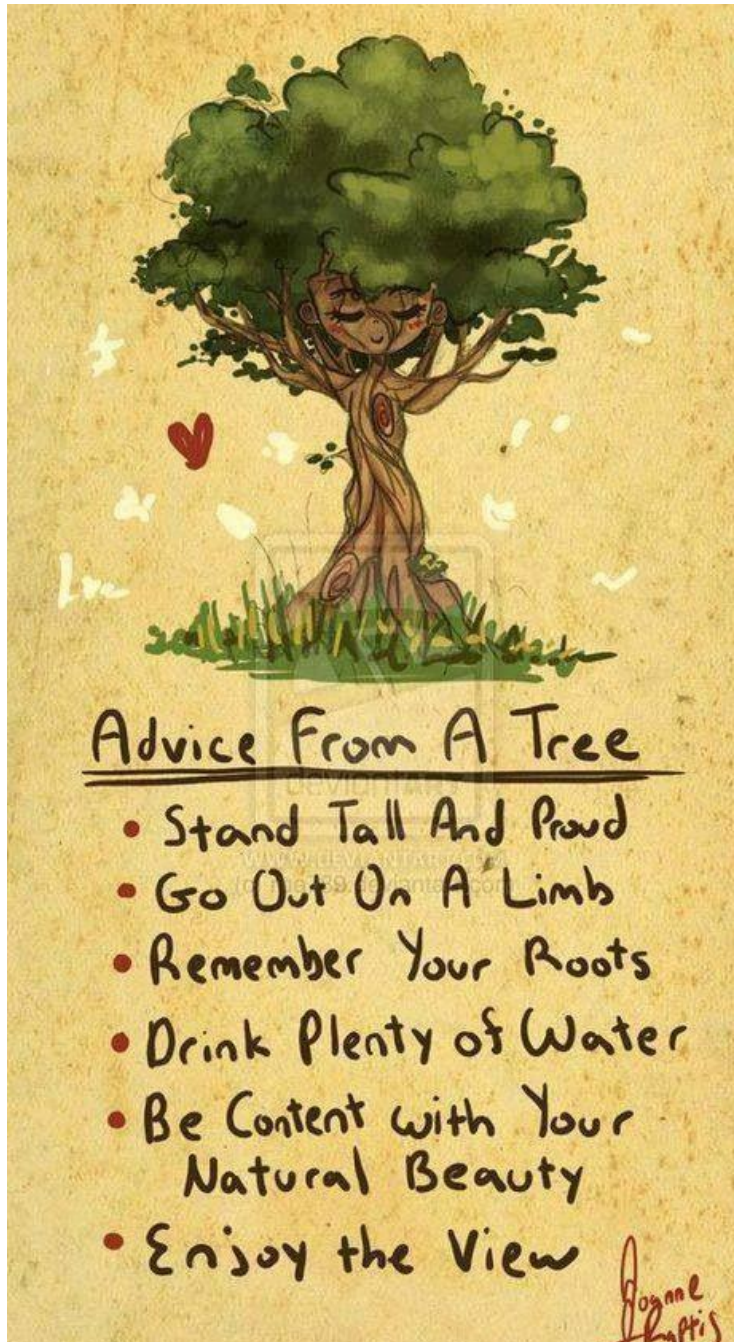 Advice From A Tree
deviantART
• Stand Tall And Proud
• Go Out On A Limb
• Remember Your Roots
• Drink Plenty of Water
• Be Content with Your
Natural Beauty
• Enjoy the View
Joanne